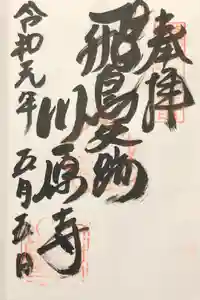 奉拝
飛鳥大佛
川原寺
令和元年
五月五日